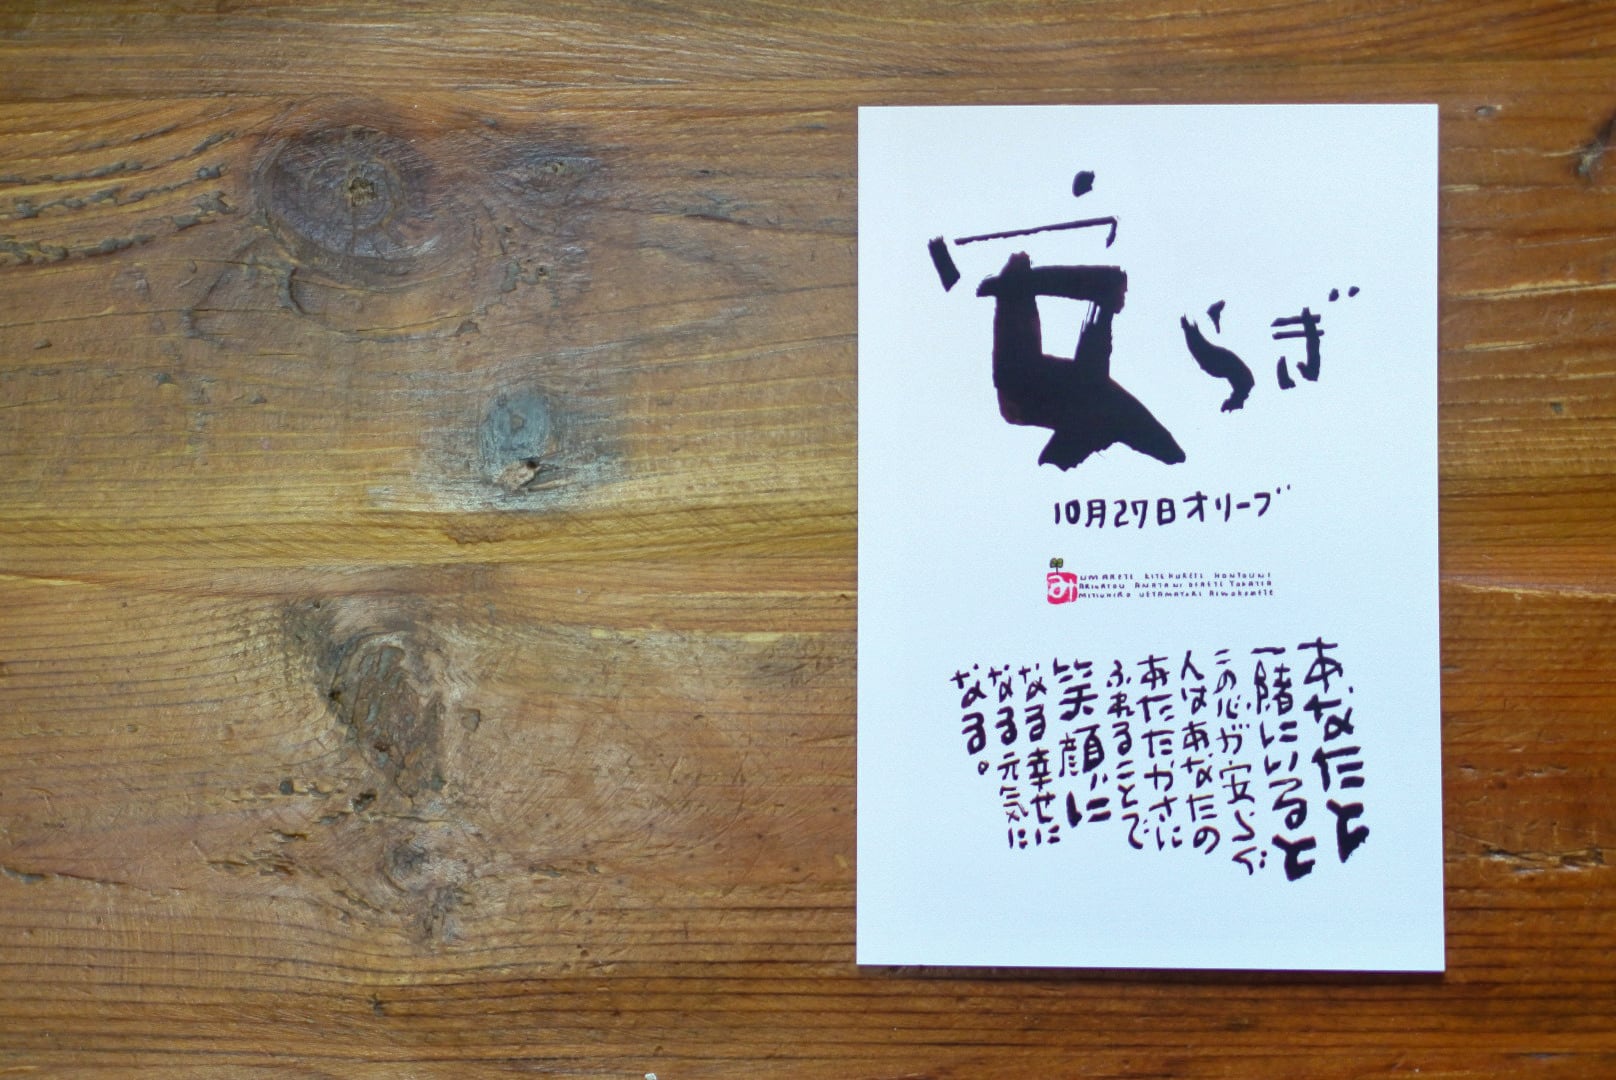 安らぎ
10月27日オリーブ
み
UMARETE KITEKURETE HONTOUNI
ARIGATOU ANATANI DEAETE YOKATTA
MITIUHIRO UETAMATURI AIWOKOMETE
あなたと
一緒にいると
この心が安らぐ
人はあなたの
あたたかさに
ふれることで
笑顔に
なる幸せに
なる元気に
なる。